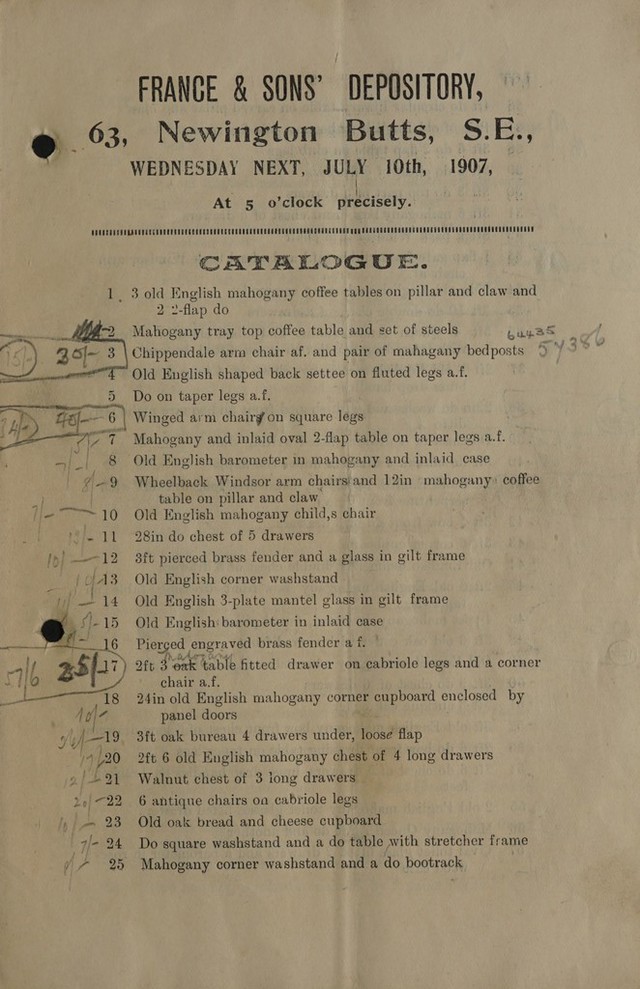 FRANCE & SONS' DEPOSITORY,
63, Newington Butts, S.E.,
WEDNESDAY NEXT, JULY 10th, 1907,
At 5 o'clock precisely.
CATALOGUE.
1 3 old English mahogany coffee tables on pillar and claw and
2 2-flap do
2 Mahogany tray top coffee table and set of steels
25/- 3 Chippendale arm chair af. and pair of mahagany bedposts
4 Old English shaped back settee on fluted legs a.f.
5 Do on taper legs a.f.
6 Winged arm chair on square legs
7 Mahogany and inlaid oval 2-flap table on taper legs a.f.
8 Old English barometer in mahogany and inlaid case
9 Wheelback Windsor arm chairs and 12in mahogany coffee
table on pillar and claw
10 Old English mahogany child,s chair
11 28in do chest of 5 drawers
12 3ft pierced brass fender and a glass in gilt frame
13 Old English corner washstand
14 Old English 3-plate mantel glass in gilt frame
15 Old English barometer in inlaid case
16 Pierced engraved brass fender a f.
25/- 17 2ft 3 oak table fitted drawer on cabriole legs and a corner
chair a.f.
18 24in old English mahogany corner cupboard enclosed by
panel doors
19 3ft oak bureau 4 drawers under, loose flap
20 2ft 6 old English mahogany chest of 4 long drawers
21 Walnut chest of 3 long drawers
22 6 antique chairs on cabriole legs
23 Old oak bread and cheese cupboard
7/- 24 Do square washstand and a do table with stretcher frame
25 Mahogany corner washstand and a do bootrack